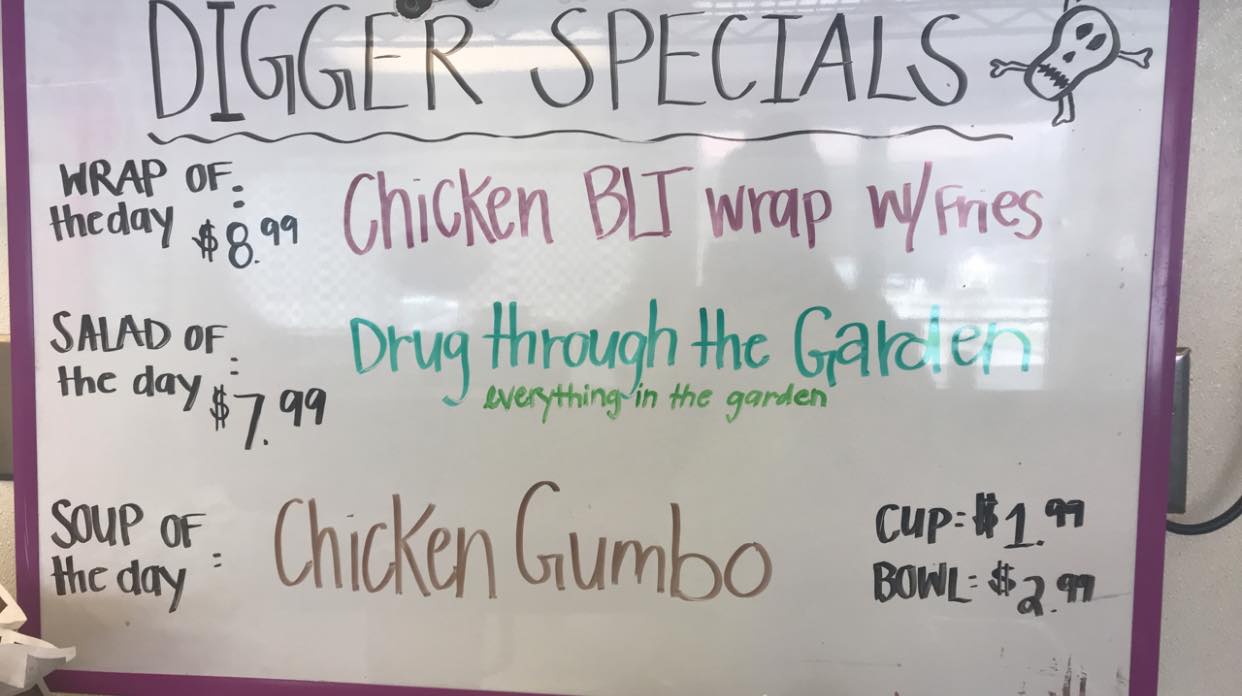 DIGGER SPECIALS
WRAP OF
the day : $8.99 Chicken BLT wrap w/Fries
SALAD OF
the day : $7.99 Drug through the Garden
everything in the garden
SOUP OF
the day : Chicken Gumbo
CUP: $1.99
BOWL: $2.99